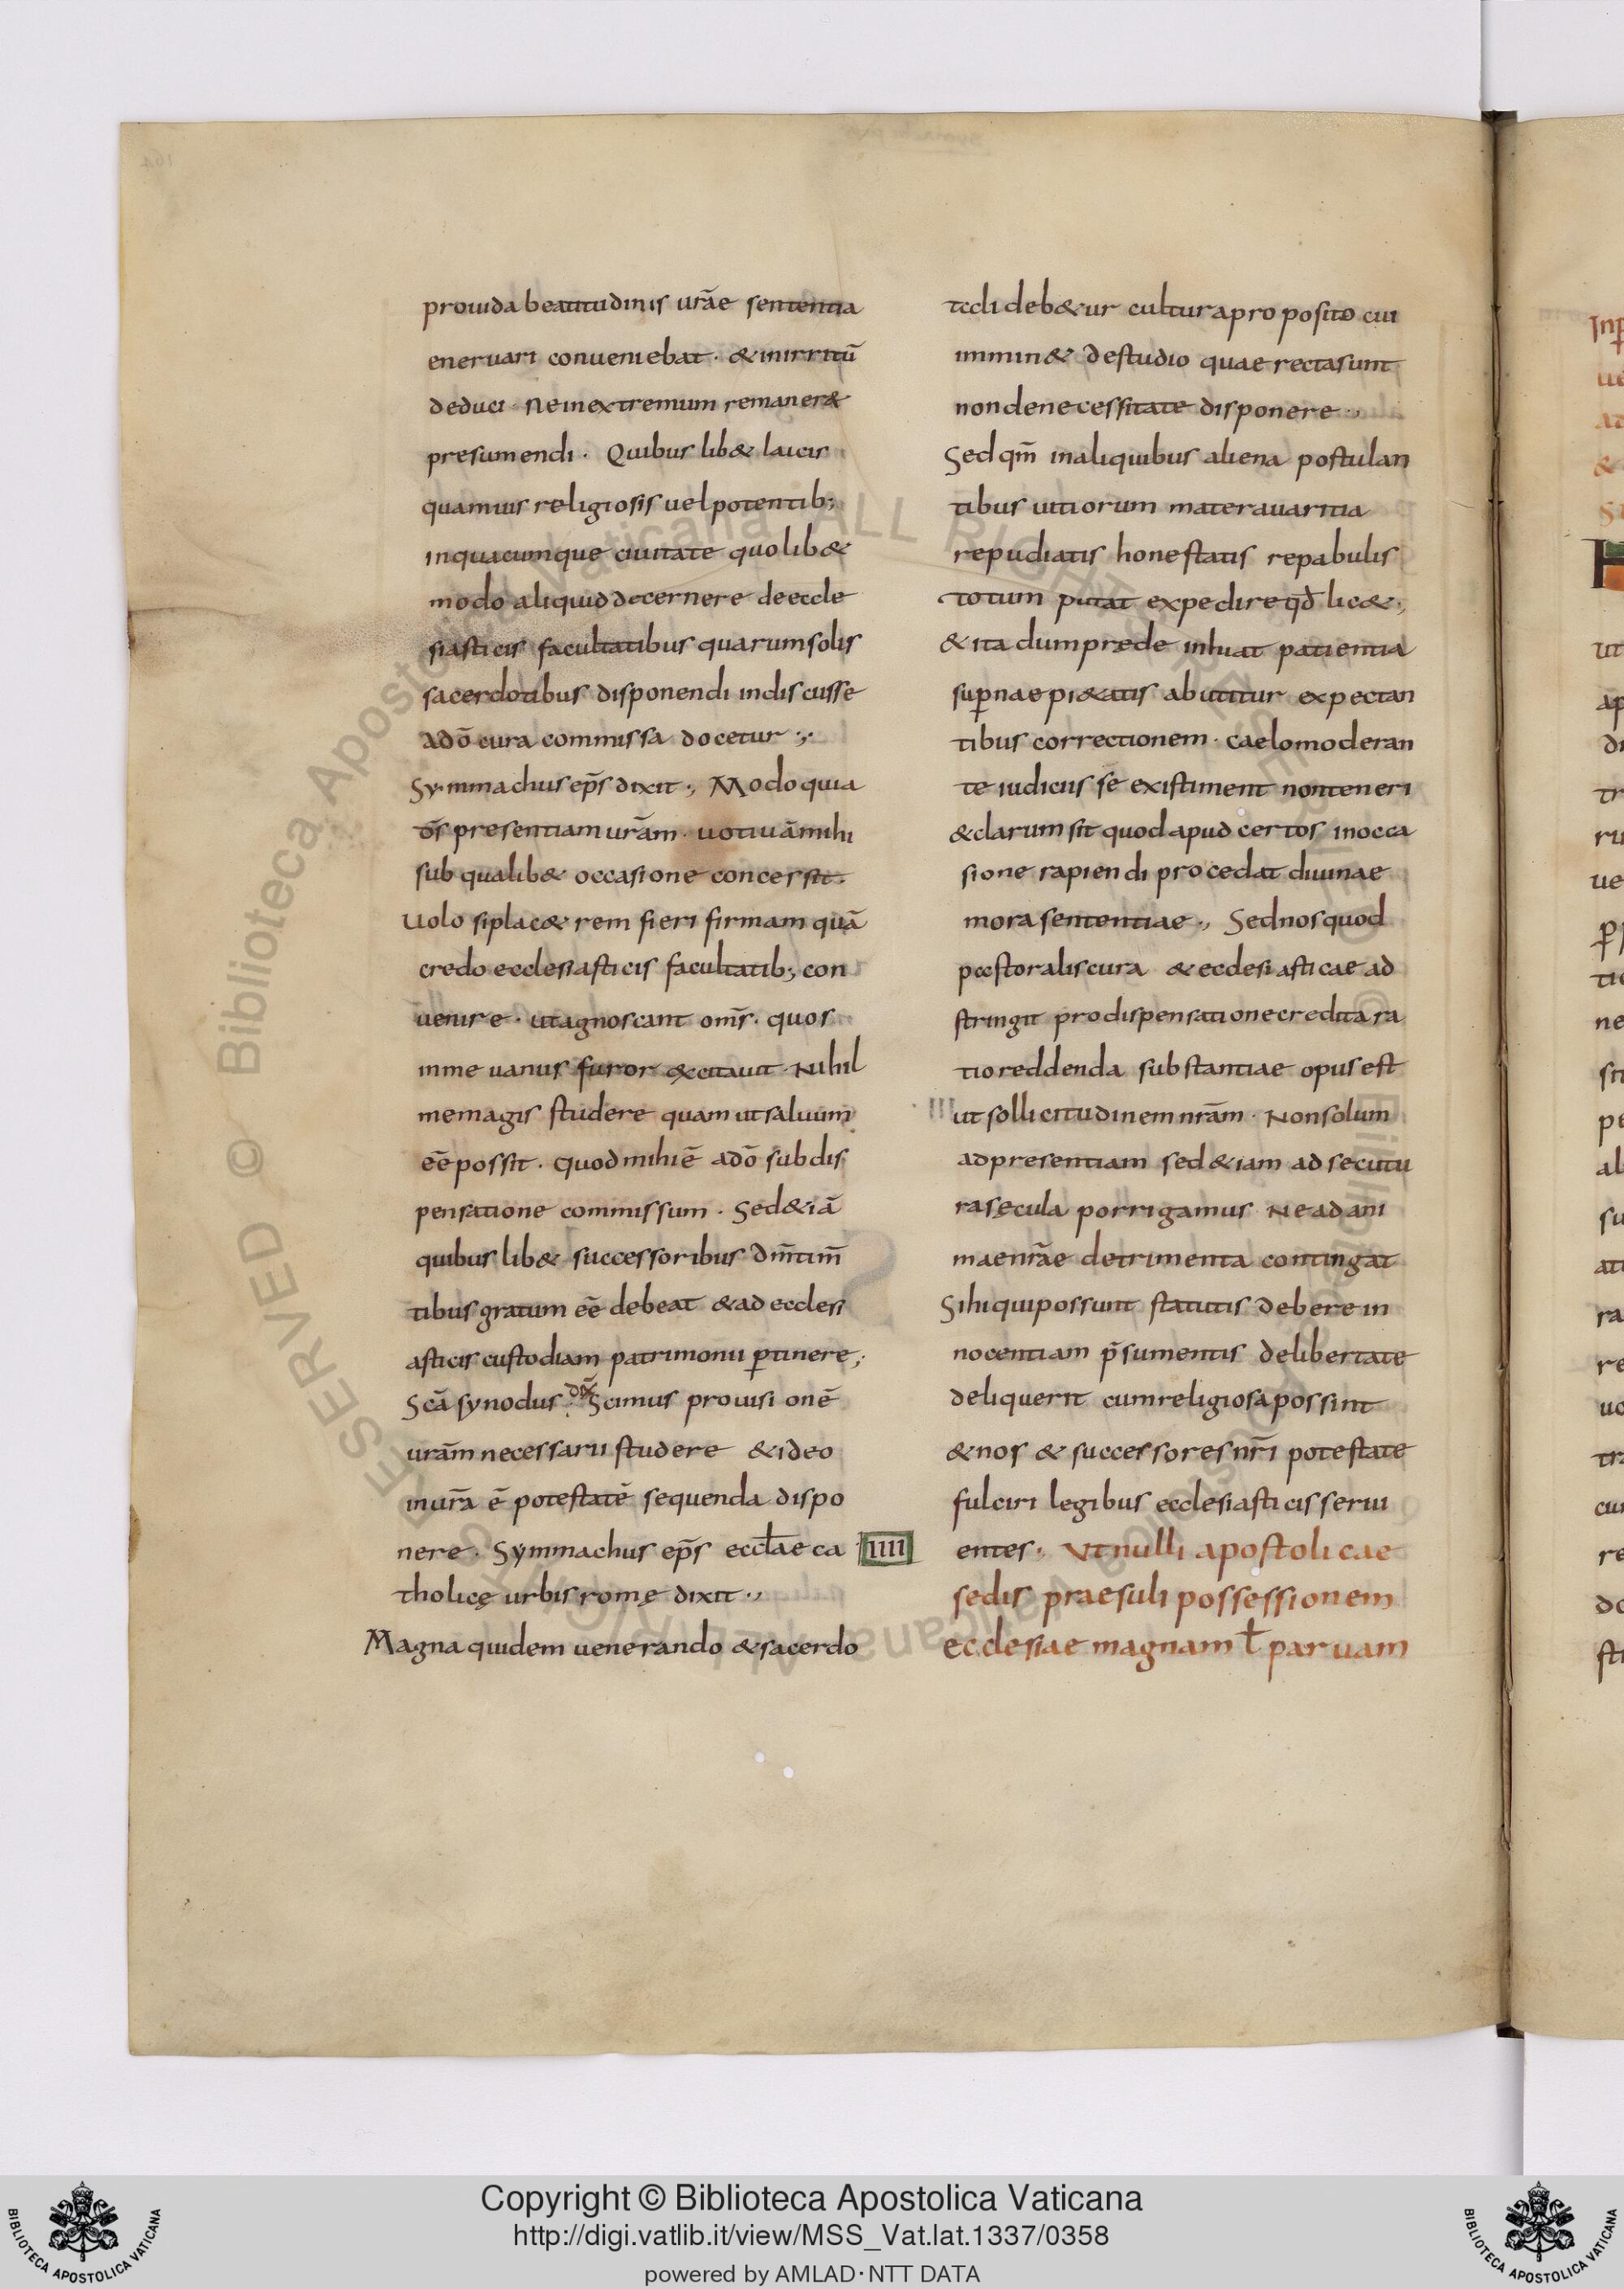 prouida beatitudinis urãe sententia
eneruari conueniebat · & inirritũ
deduci · Ne inextremum remaner&
presumendi · Quibus lib& laicis
quamuis religiosis uel potentib;
inquacumque ciuitate quolib&
modo aliquid decernere de eccle
siasticis facultatibus quarum solis
sacerdotibus disponendi indiscusse
adõ cura commissa docetur ·,·
Symmachus ep̃s dixit ·, Modo quia
d̃s presentiam urãm · uotiuã mihi
sub qualib& occasione concessit ·
Uolo si plac& rem fieri firmam quã
credo ecclesiasticis facultatib; con
uenire · ut agnoscant om̃s · quos
inme uanus furor excitauit · Nihil
me magis studere quam ut saluum
eẽ possit · quod mihi ẽ adõ sub dis
pensatione commissum · Sed&iã
quibus lib& successoribus dm̃tim̃
tibus gratum eẽ debeat & ad ecclesi
asticis custodiam patrimonii p̱tinere ;·
Scã synodus dix̃ Scimus prouisionẽ
urãm necessarii studere & ideo
inurã ẽ potestatẽ sequenda dispo
nere · Symmachus ep̃s eccłae ca
tholicę urbis romę dixit ·,
Magna quidem uenerando & sacerdo
tccli deb&ur cultura proposito cui
immin& destudio quae recta sunt
non de necessitate disponere ·,
Sed qm̃ inaliquibus aliena postulan
tibus uitiorum mater auaritia
repudiatis honestatis repabulis
totum putat expedire qd̃ lic& ·,
& ita dum prede inhiat patientia
sup̱nae pi&atis abutitur expectan
tibus correctionem · caelo moderan
te iudiciis se existiment non teneri
& clarum sit quod apud certos inocca
sione rapiendi procedat diuinae
mora sententiae ·, Sed nos quod
pccstoralis cura & ecclesiasticae ad
stringit pro dispensatione credita ra
tio reddenda substantiae opus est
III ut sollicitudinem nrãm · Non solum
ad presentiam sed &iam ad secutu
ra sęcula porrigamus Ne ad ani
mae nrãe detrimenta contingat
Si hi qui possunt statutis debere in
nocentiam p̃sumentis de libertate
deliquerit cum religiosa possint
& nos & successores nrĩ potestate
fulciri legibus ecclesiasticis serui
IIII entes · Ut nulli apostolicae
sedis praesuli possessionem
ecclesiae magnam ł paruam
Copyright © Biblioteca Apostolica Vaticana
http://digi.vatlib.it/view/MSS_Vat.lat.1337/0358
powered by AMLAD·NTT DATA